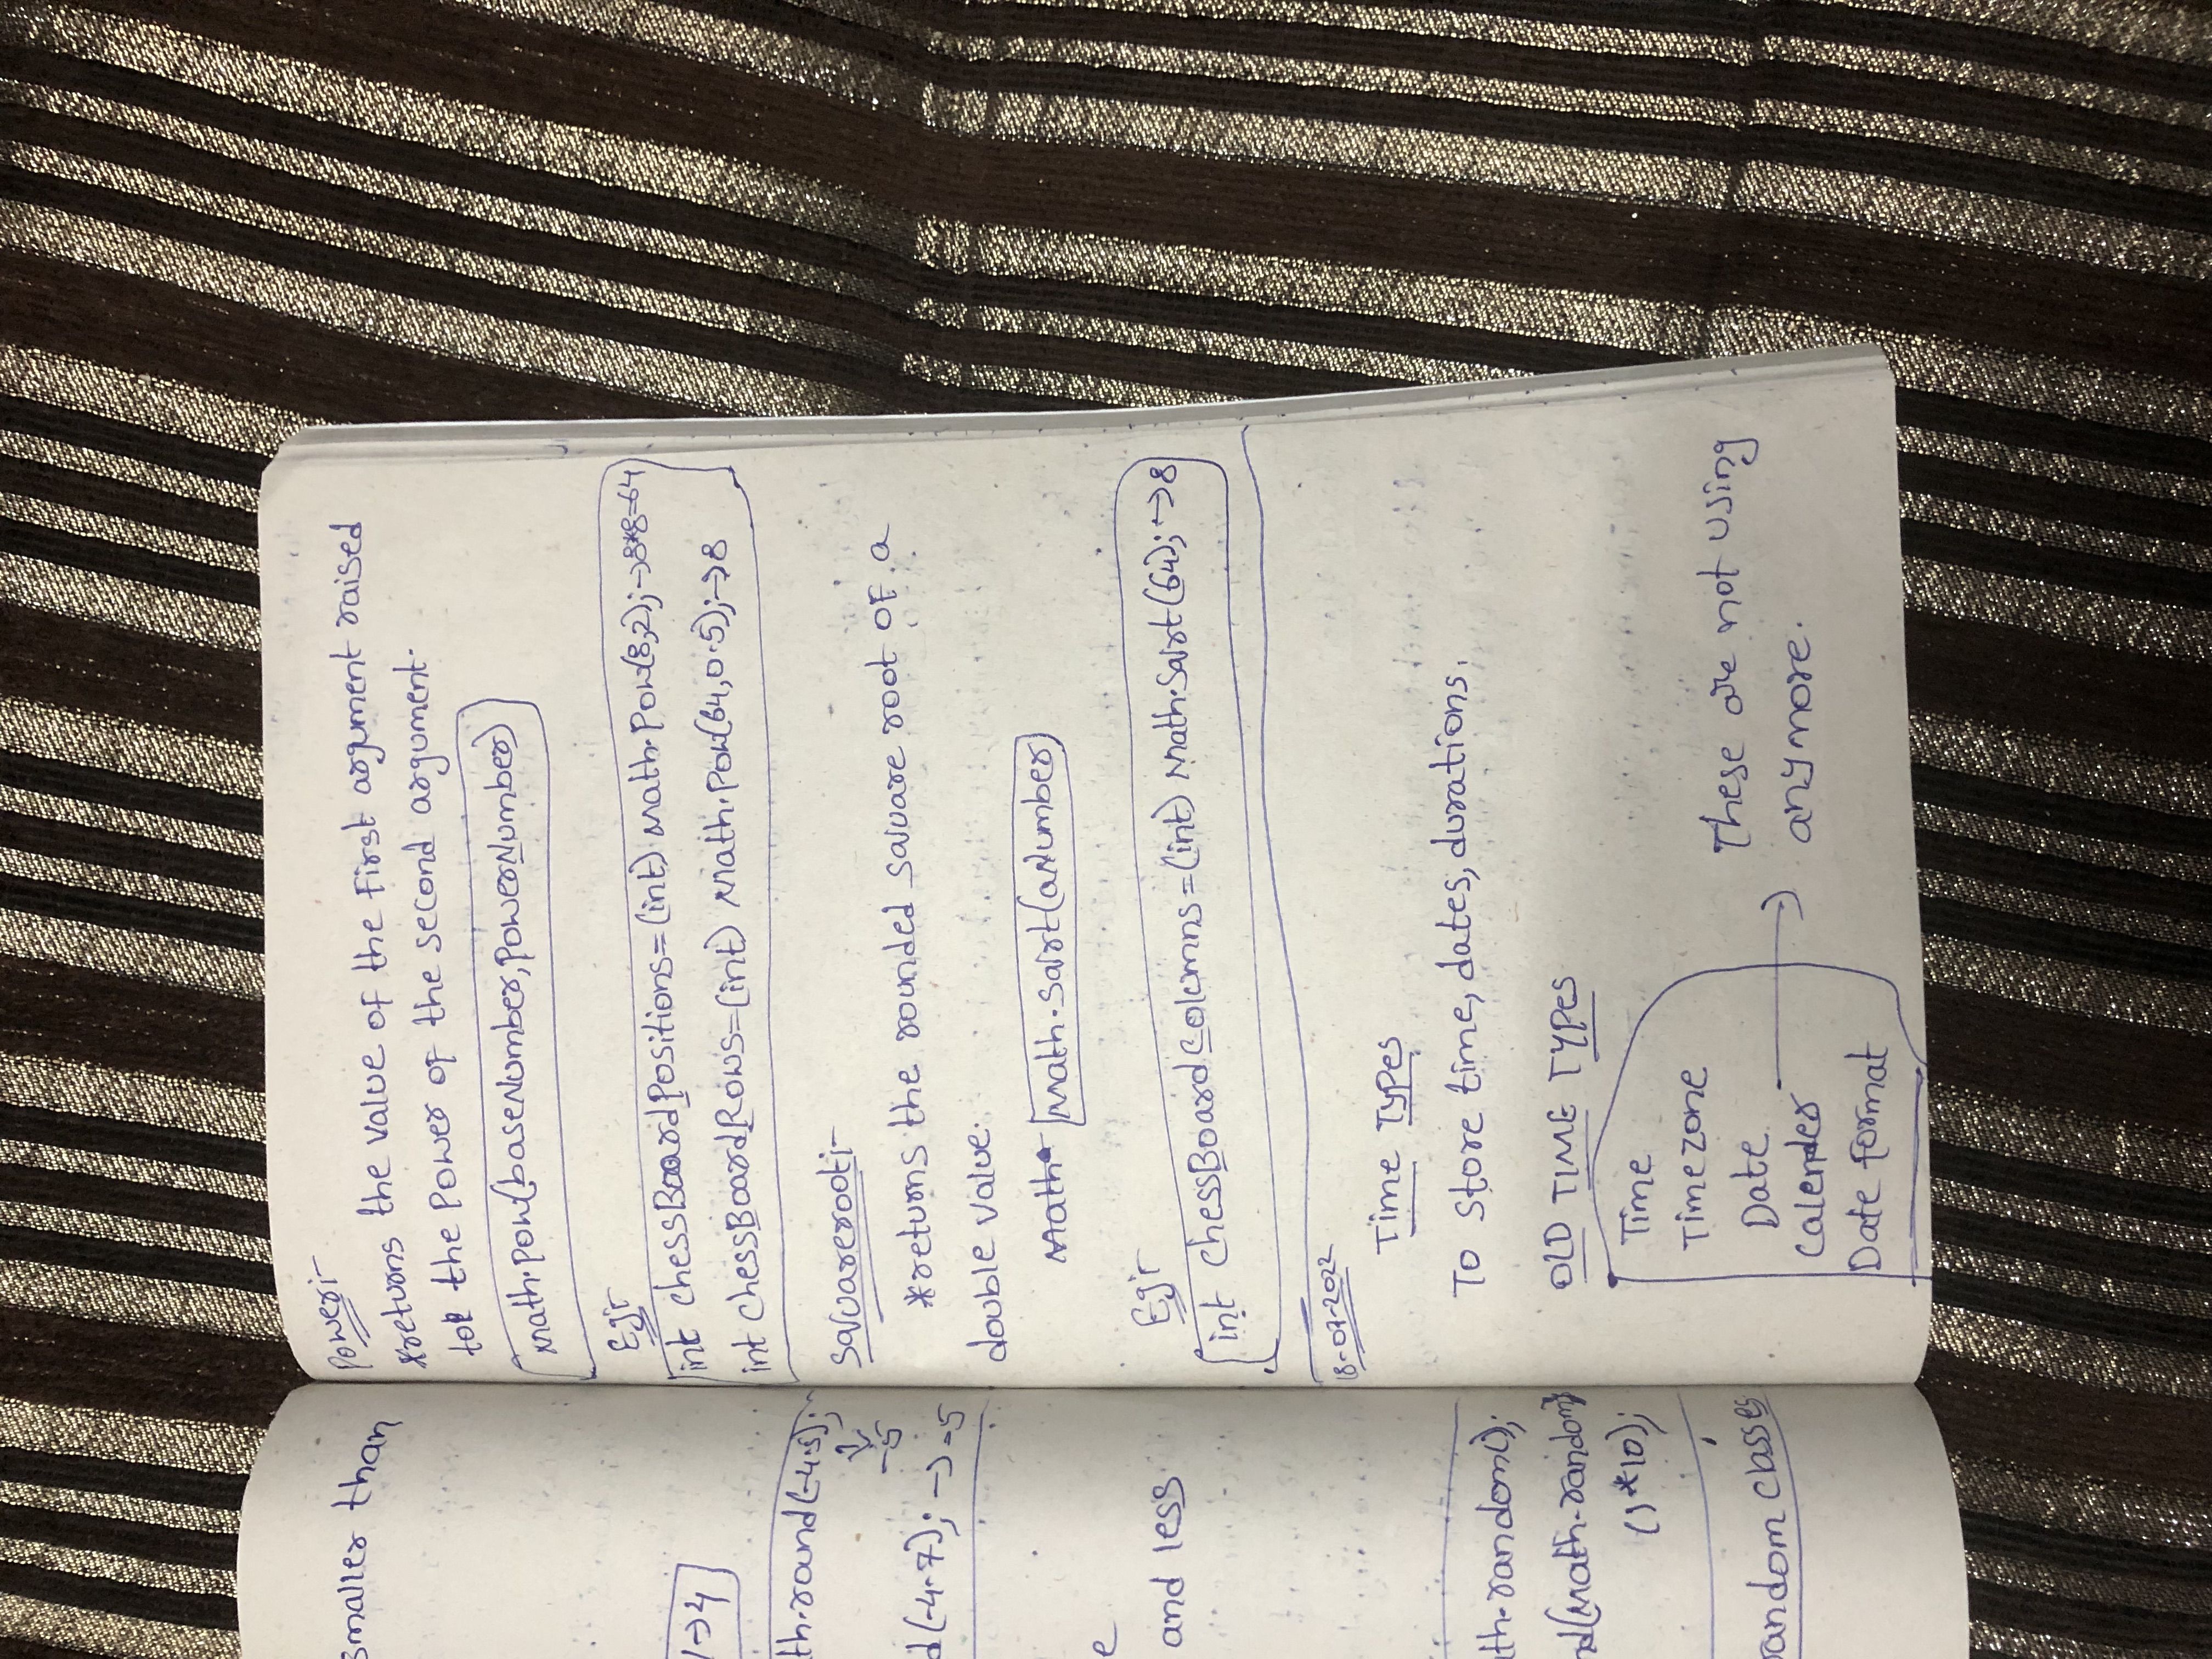 smaller than
/→4
th.round(-4.5);
→
-5
d(-4.7); → -5
e
and less
th.random();
nd(Math.random
()*10);
random classes
Power:-
*returns the value of the first argument raised
to the power of the second argument.
Math.pow(baseNumber,powerNumber)
Eg:-
int chessBoardPositions=(int) Math.pow(8,2);→8*8=64
int chessBoardRows=(int) Math.pow(64,0.5);→8
Squareroot:-
*returns the rounded square root of a
double value.
Math. Math.sqrt(aNumber)
Eg:-
int chessBoardColumns=(int) Math.sqrt(64);→8
18-07-2022
Time Types
To store time, dates, durations.
OLD TIME TYPES
Time
Timezone
Date
Calender
Date format
→ These are not using
anymore.